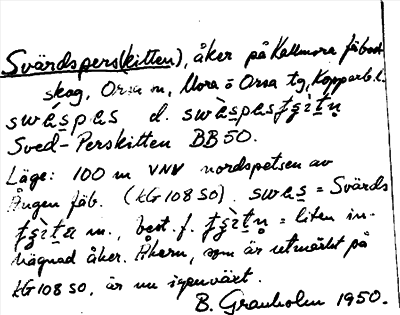 Svärdspers(kitten), åker på Kallmora fäbod-
skog, Orsa sn, Mora o Orsa tg, Kopparb. l.
d.
Sved-Perskitten BB50.
Läge: 100 m VNV nordspetsen av
Ängen fäb. (KG 108 SO). = Svärds
m., best. f. = liten in-
hägnad åker. Åkern, som är utmärkt på
KG 108 SO, är nu igenväxt.
B. Granholm 1950.